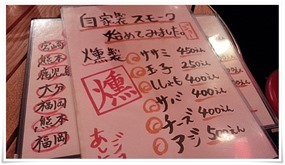 自家製スモーク
始めてみました。
燻製
ササミ 450えん
玉子
ししゃも 400えん
サバ 400えん
チーズ 400えん
アジ 500えん
燻
宮崎
熊本
鹿児島
大分
福岡
熊本
福岡